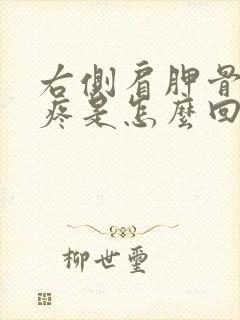 右側肩胛骨
疼是怎麼回
柳世璽